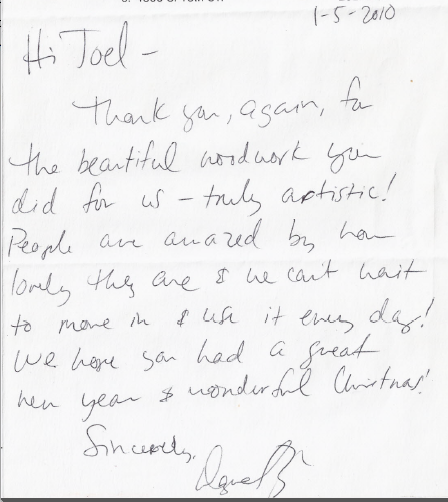 1-5-2010
Hi Joel -
Thank you, again, for
the beautiful woodwork you
did for us - truly artistic!
People are amazed by how
lovely they are & we can't wait
to move in & use it every day!
We hope you had a great
new year & wonderful Christmas!
Sincerely,